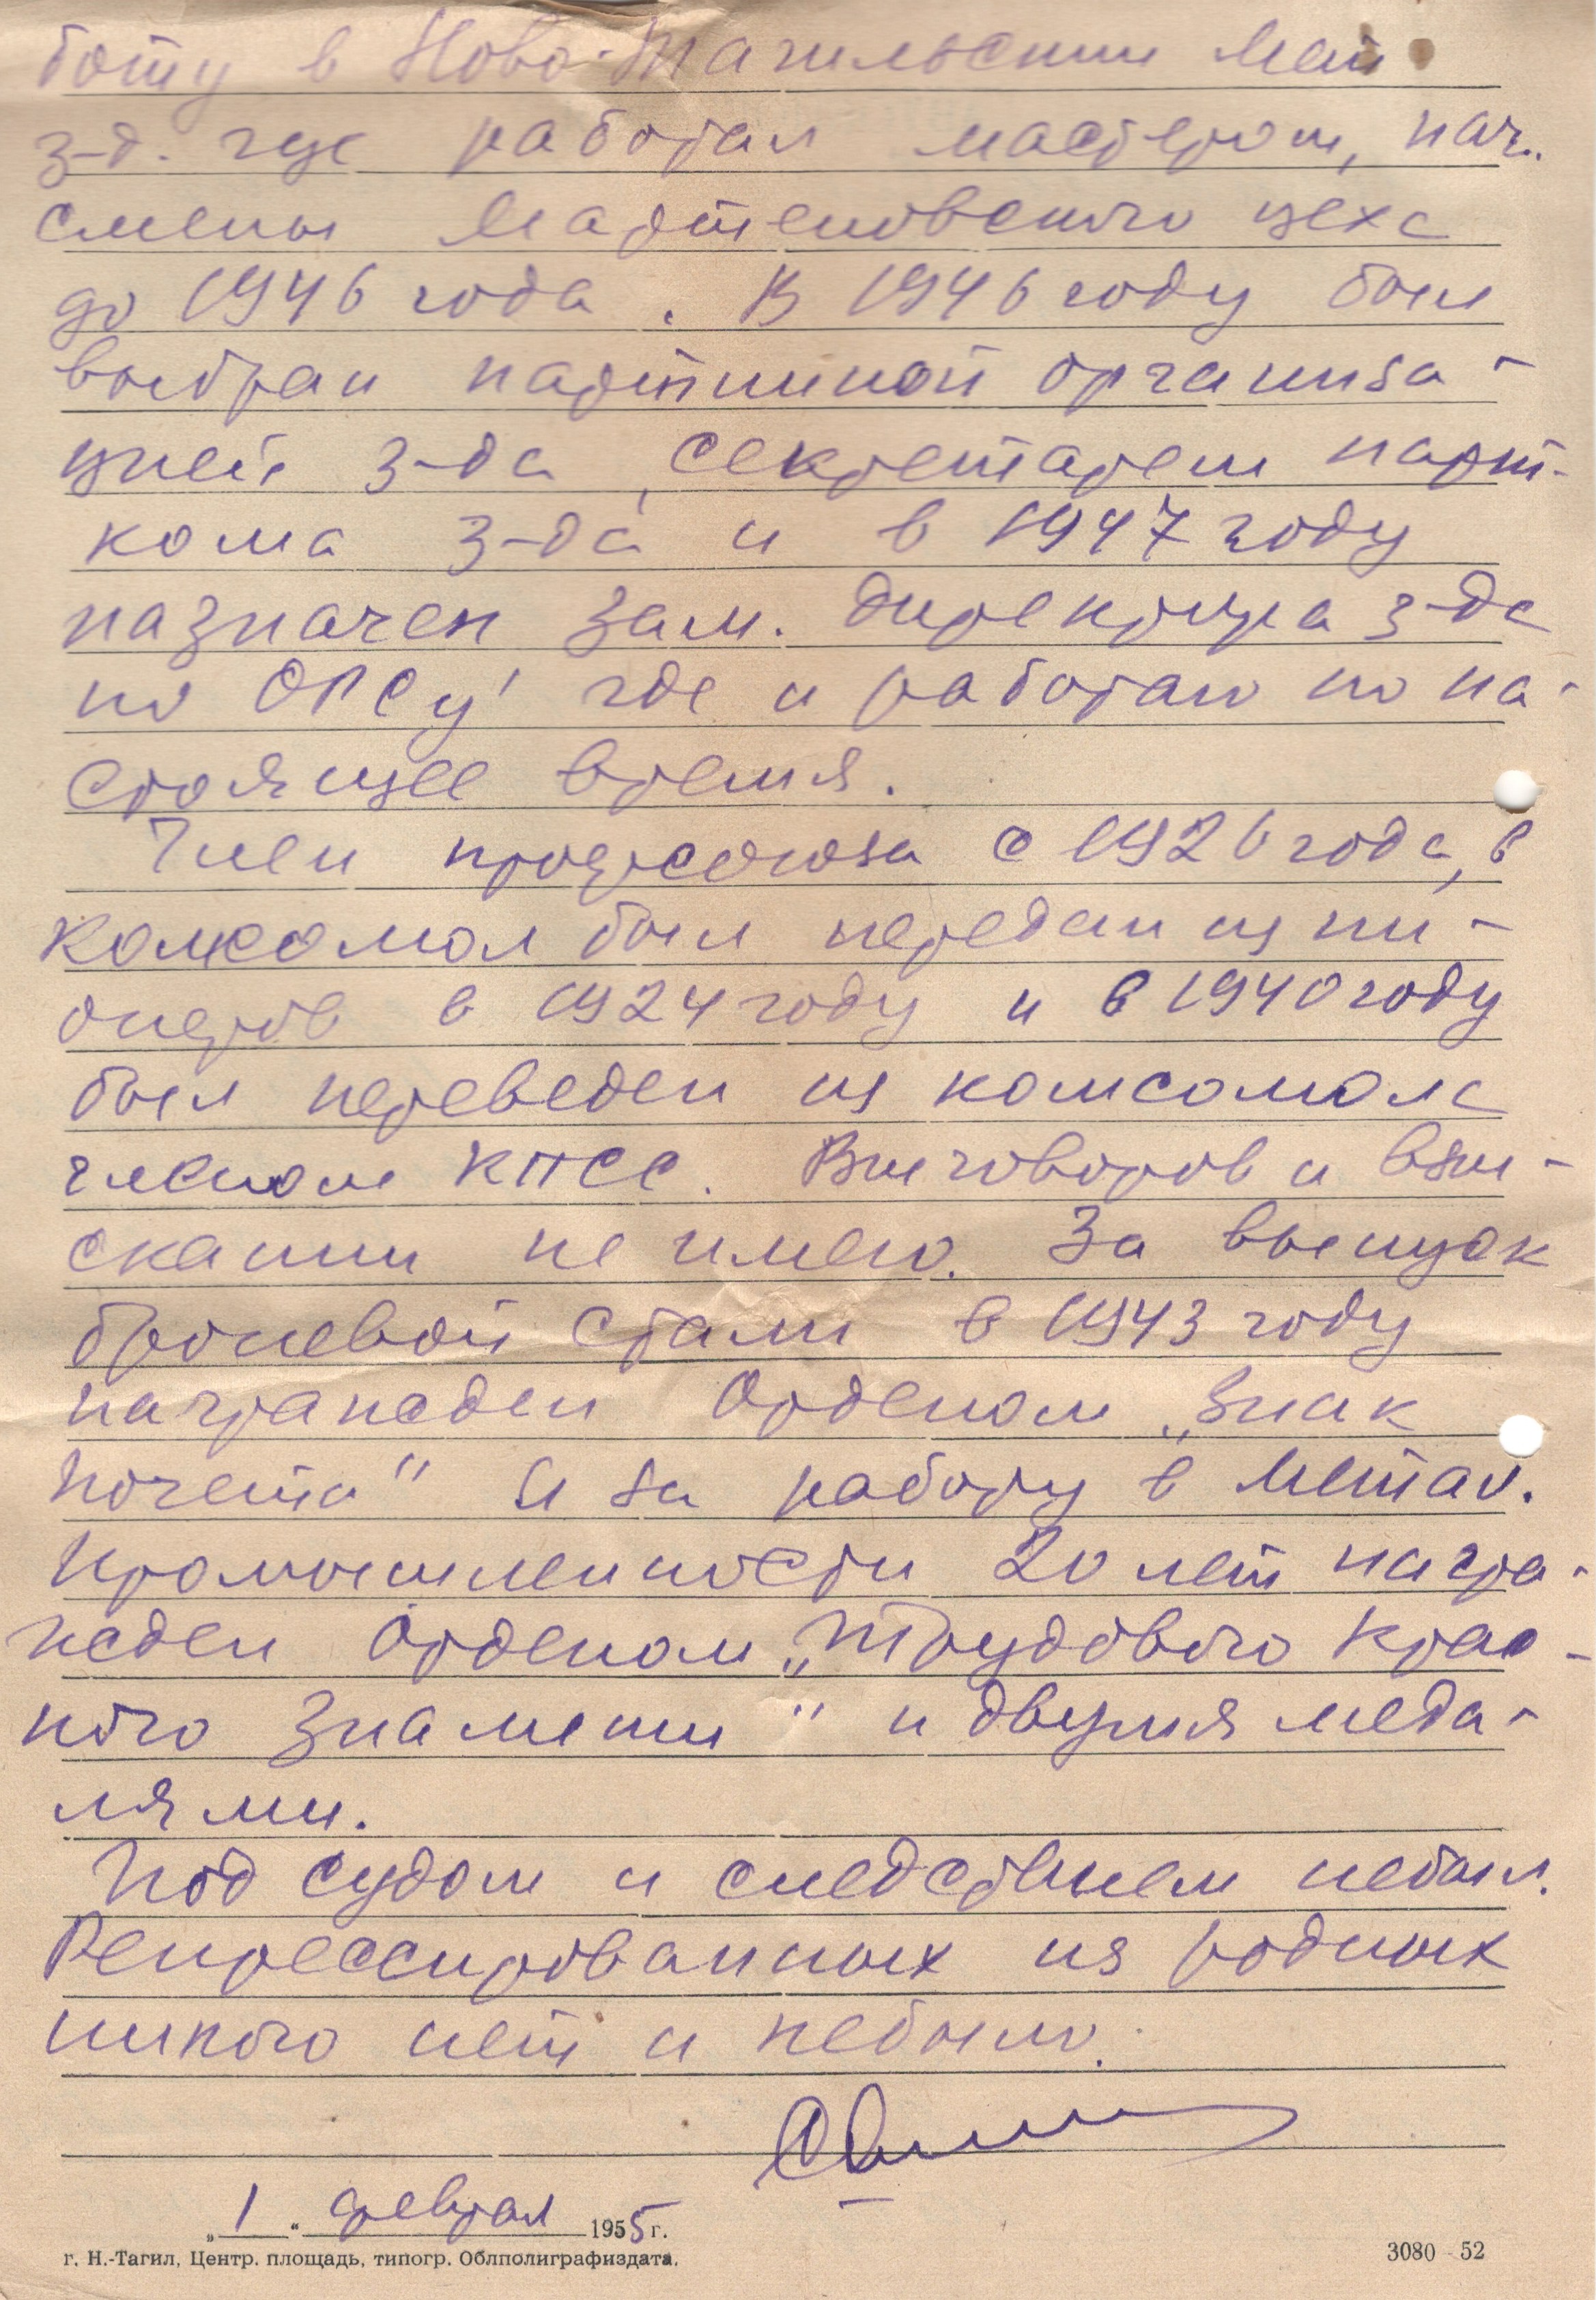 боту в Ново-Тагильский Мет
з-д. где работал мастером, нач.
смены Мартеновского цеха
до 1946 года. В 1946 году был
выбран партийной организа-
цией з-да, секретарем парт-
кома з-да и в 1947 году
назначен зам. директора з-да
по ОРСу где и работаю по на-
стоящее время.
Член профсоюза с 1926 года, в
комсомол был передан из пи-
онеров в 1924 году и в 1940 году
был переведен из комсомола
членом КПСС. Выговоров и взы-
сканий не имею. За выпуск
броневой стали в 1943 году
награжден Орденом „Знак
Почета" и за работу в Метал.
промышленности 20 лет награ-
жден Орденом „Трудового Крас-
ного Знамени" и двумя меда-
лями.
Под судом и следствием небыл.
Репрессированных из родных
никого нет и небыло.
„1" феврал 1955 г.
г. Н.-Тагил, Центр. площадь, типогр. Облполиграфиздата. 3080-52